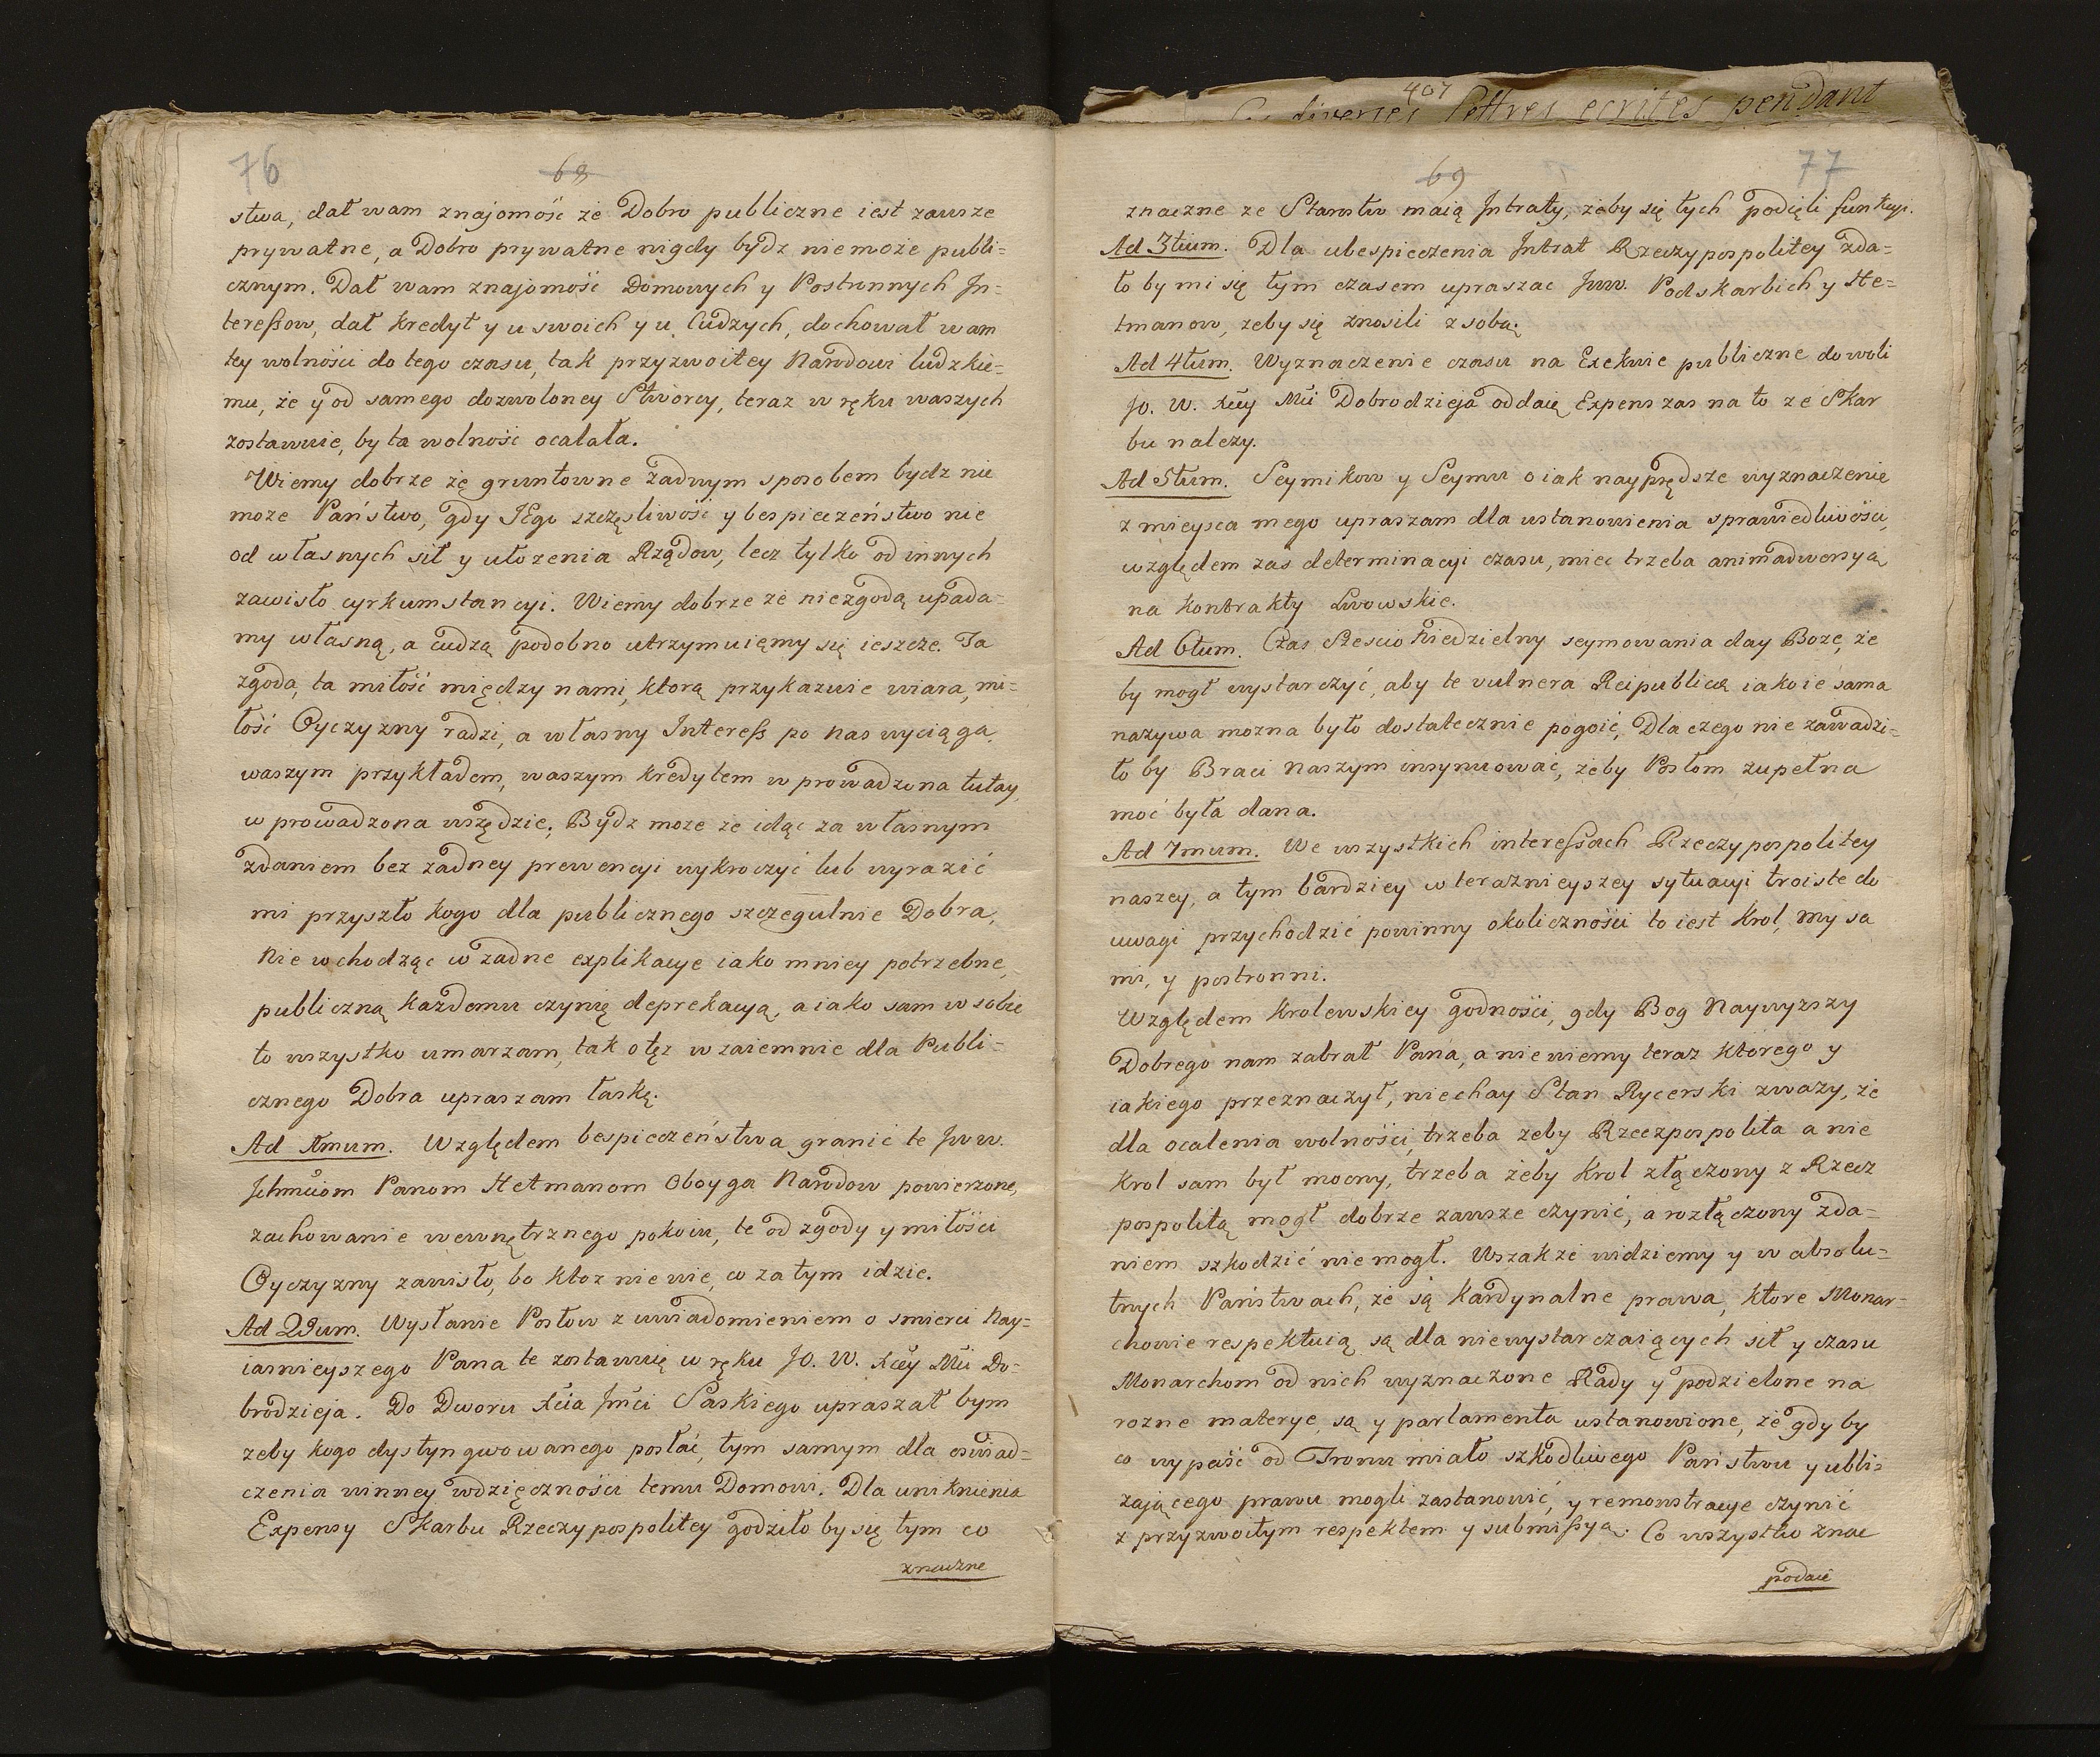 76
68
stwa, dał wam znajomość że Dobro publiczne iest zawsze
prywatne, a Dobro prywatne nigdy bydz niemoże publi=
cznym. Dał wam znajomość Domowych y Postronnych In=
teressow, dał kredyt y u swoich y u Cudzych, dochował wam
tey wolności do tego czasu, tak przyzwoitey Narodowi ludzkie=
mu, że y od samego dozwoloney Stworcy, teraz w ręku waszych
zostawuie, by ta wolność ocalała.
Wiemy dobrze zę gruntowne żadnym sposobem bydz nie
moze Państwo, gdy IEgo szczęsliwość y bespieczeństwo nie
od własnych sił y ułozenia Rządow, lecz tylko od innych
zawisło cyrkumstancyi. Wiemy dobrze ze niezgodą upada=
my własną, a cudzą podobno utrzymuiemy się ieszcze. Ta
zgoda, ta miłość między nami, ktorą przykazuie wiara, mi=
łość Oyczyzny radzi, a własny Interess po nas wyciąga,
waszym przykładem, waszym kredytem wprowadzona tutay,
wprowadzona wszędzie; Bydz moze ze idąc za własnym
zdaniem bez zadney prewencyi wykroczyć lub wyrazić
mi przyszło kogo dla publicznego szczegulnie Dobra,
Nie wchodząc w zadne explikacye iako mniey potrzebne,
publiczną każdemu czynię deprekacyą, a iako sam w sobie
to wszystko umarzam, tak otęz wzaiemnie dla Publi=
cznego Dobra upraszam łaskę.
Ad 1mum. Względem bespieczeństwa granic te Jww.
Ichmciom Panom Hetmanom Oboyga Narodow powierzone,
zachowanie wewnętrznego pokoiu, te od zgody y miłości
Oyczyzny zawisło, bo ktoz nie wie, co za tym idzie.
Ad 2dum. Wysłanie Posłow z uwiadomieniem o smierci Nay=
iasnieyszego Pana te zostawuię w ręku JO. W. Xcey Mci Do=
brodzieja. Do Dworu Xcia Jmci Saskiego upraszał bym
zeby kogo dystyngwowanego posłać, tym samym dla oswiad=
czenia winney wdzięczności temu Domowi. Dla uniknienia
Expensy Skarbu Rzeczypospolitey godziło by się tym co
znaczne
407
diverses Lettres ecrites pendant
69
77
znaczne ze Starostw maią Intraty, żeby się tych podięli funkcyi.
Ad 3tium. Dla ubespieczenia Intrat Rzeczypospolitey zda=
ło by mi się tym czasem upraszac Jww. Podskarbich y He=
tmanow, zeby się znosili z sobą.
Ad 4tum. Wyznaczenie czasu na Exekwie publiczne do woli
JO. W. Xcey Mci Dobrodzieja oddaię, Expens zas na to ze Skar
bu nalezy.
Ad 5tum. Seymikow y Seymu o iak nayprędsze wyznaczenie
z mieysca mego upraszam dla ustanowienia sprawiedliwości,
względem zas determinacyi czasu, miec trzeba animadwersyą
na kontrakty Lwowskie.
Ad 6tum. Czas szescio Niedzielny seymowania day Boze, że
by mogł wystarczyć, aby te vulnera Reipublicæ iako ie sama
nazywa mozna było dostatecznie pogoić, Dla czego nie zawadzi=
ło by Braci naszym insynuować, zeby Posłom zupełna
moć była dana.
Ad 7mum. We wszystkich interessach Rzeczypospolitey
naszey, a tym bardziey w teraznieyszey sytuacyi troiste do
uwagi przychodzić powinny okoliczności to iest Krol, my sa
mi, y postronni.
Względem Krolewskiey godności, gdy Bog Naywyzszy
Dobrego nam zabrał Pana, a nie wiemy teraz ktorego y
iakiego przeznaczył, niechay Stan Rycerski zwazy, że
dla ocalenia wolności, trzeba zeby Rzeczpospolita a nie
Krol sam był mocny, trzeba żeby Krol złączony z Rzecz
pospolitą mogł dobrze zawsze czynić, a rozłączony zda=
niem szkodzić nie mogł. Wszakże widziemy y w absolu=
tnych Państwach, że są kardynalne prawa, ktore Monar=
chowie respektuią, są dla niewystarczaiących sił y czasu
Monarchom od nich wyznaczone Rady y podzielone na
rozne materye, są y parlamenta ustanowione, że gdy by
co wypaść od Tronu miało szkodliwego Państwu y ubli=
zającego prawu mogli zastanowić, y remonstracye czynić
z przyzwoitym respektem y submissyą. Co wszystko znac
podaie